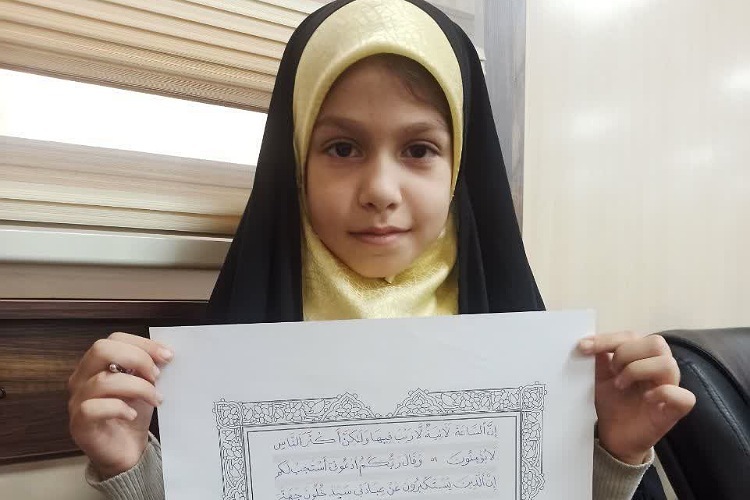 إِنَّ السَّاعَةَ لَآتِيَةٌ لَا رَيْبَ فِيهَا وَلَكِنَّ أَكْثَرَ النَّاسِ
لَا يُؤْمِنُونَ ٥٩ وَقَالَ رَبُّكُمُ ادْعُونِي أَسْتَجِبْ لَكُمْ
إِنَّ الَّذِينَ يَسْتَكْبِرُونَ عَنْ عِبَادَتِي سَيَدْخُلُونَ جَهَنَّمَ